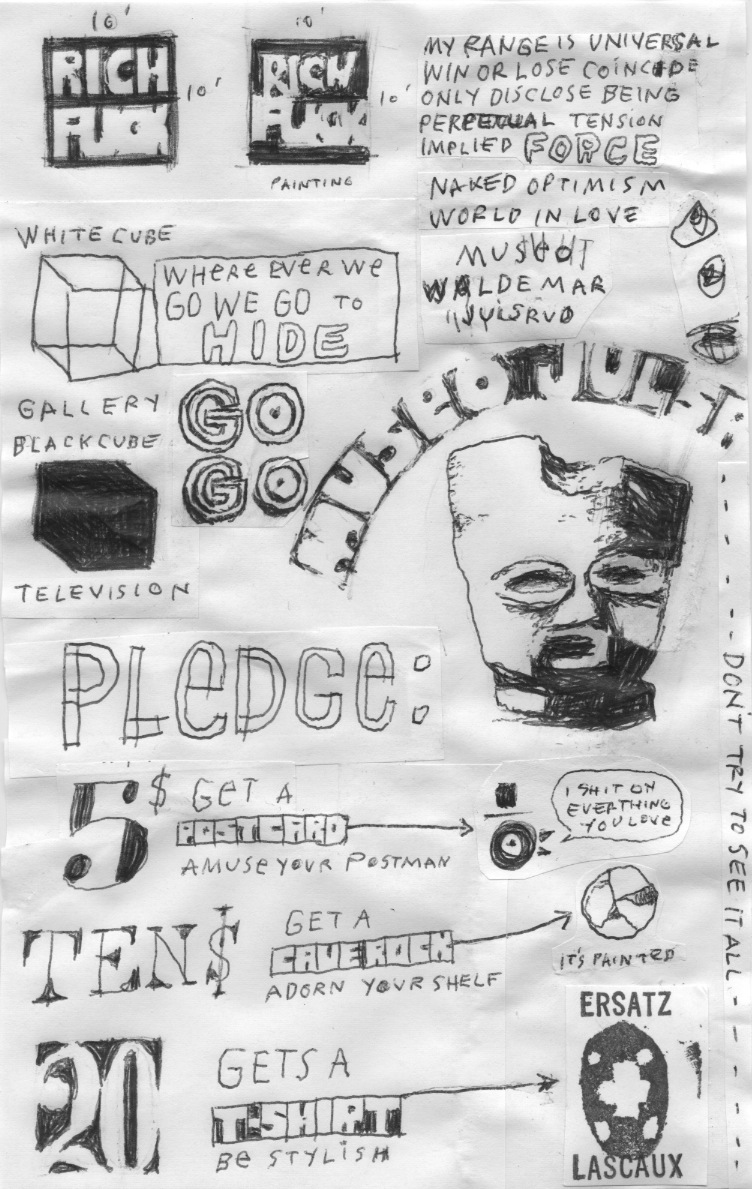 10'
10'
RICH
10'
RICH
10'
PAINTING
MY RANGE IS UNIVERSAL
WIN OR LOSE COINCIDE
ONLY DISCLOSE BEING
PERPETUAL TENSION
IMPLIED FORCE
NAKED OPTIMISM
WORLD IN LOVE
WALDEMAR
WHITE CUBE
WHERE EVER WE
GO WE GO TO
HIDE
GALLERY
BLACKCUBE
GO
GO
TELEVISION
PLEDGE:
5$ GET A
POSTCARD
AMUSE YOUR POSTMAN
I SHIT ON
EVERTHING
YOU LOVE
TEN$
GET A
CAVEROCK
ADORN YOUR SHELF
IT'S PAINTED
20
GETS A
T-SHIRT
BE STYLISH
ERSATZ
LASCAUX
DON'T TRY TO SEE IT ALL